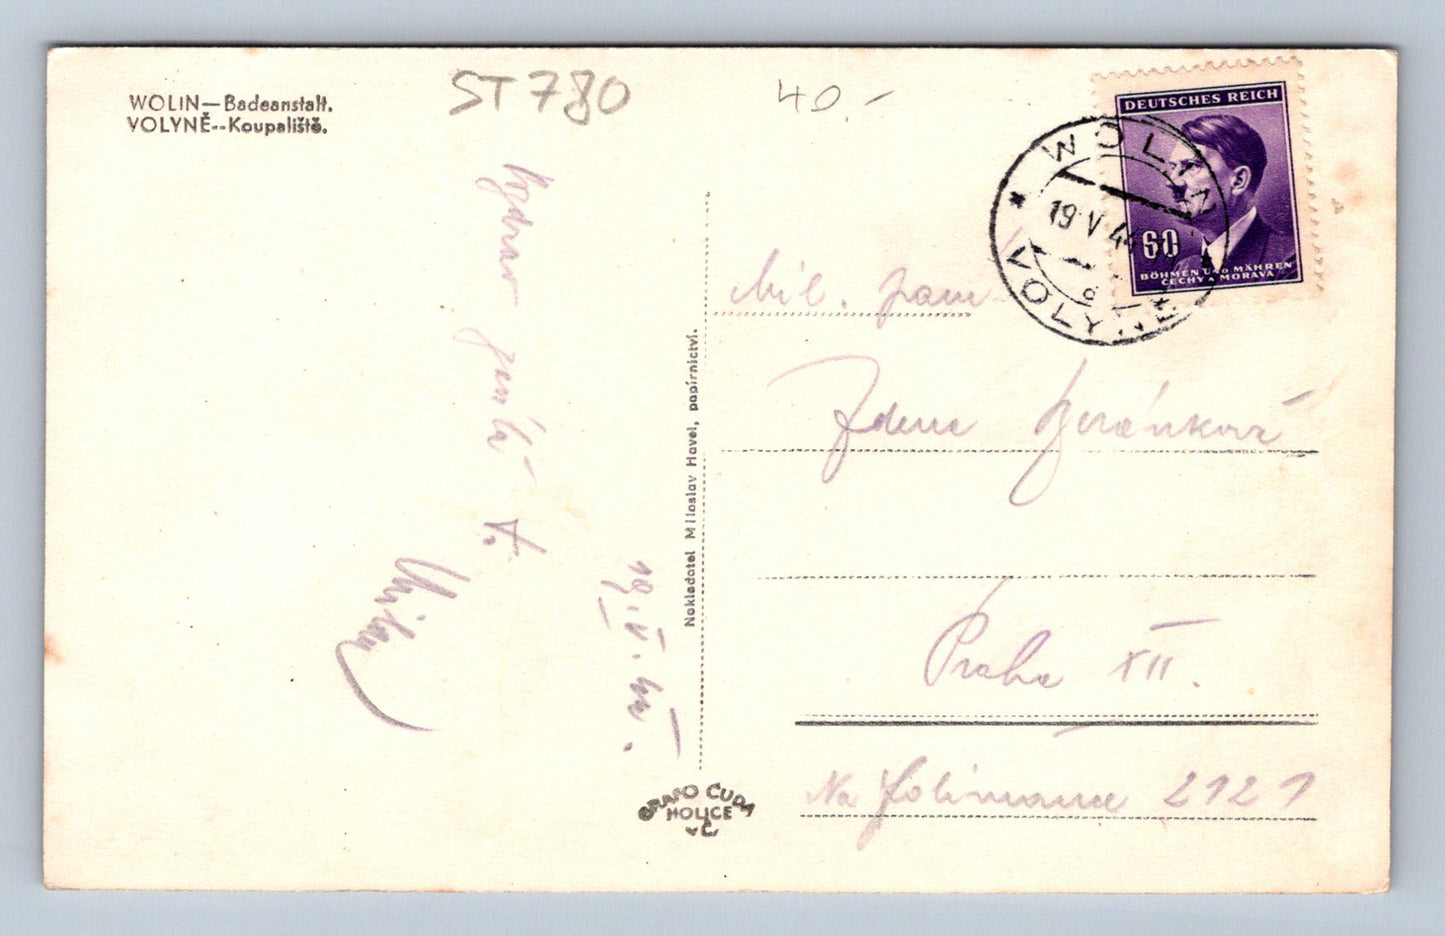 WOLIN—Badeanstalt.
VOLYNĚ--Koupaliště.
ST 780
40.-
DEUTSCHES REICH
60
BÖHMEN UND MÄHREN
ČECHY A MORAVA
WOLIN
19 V 44
VOLYNĚ
Pozdrav
19. V. 44.
Nakladatel Miloslav Havel, papírnictví.
GRAFO ČUDA
HOLICE
v Č.
Mil. paní
Zdena
Praha XII.
Na 2121